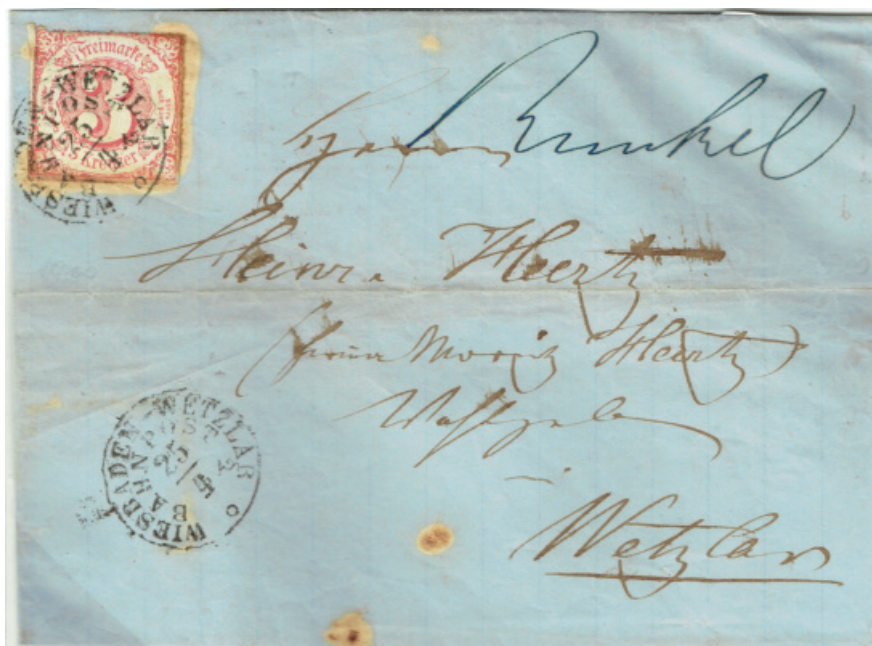 Freimarke
3
Kreuzer
WIESBADEN-WETZLAR
BAHNPOST
Runkel
Herrn
Heinr. Hertz
(Firma Moritz Hertz)
Wetzlar
WIESBADEN-WETZLAR
BAHNPOST
25/4